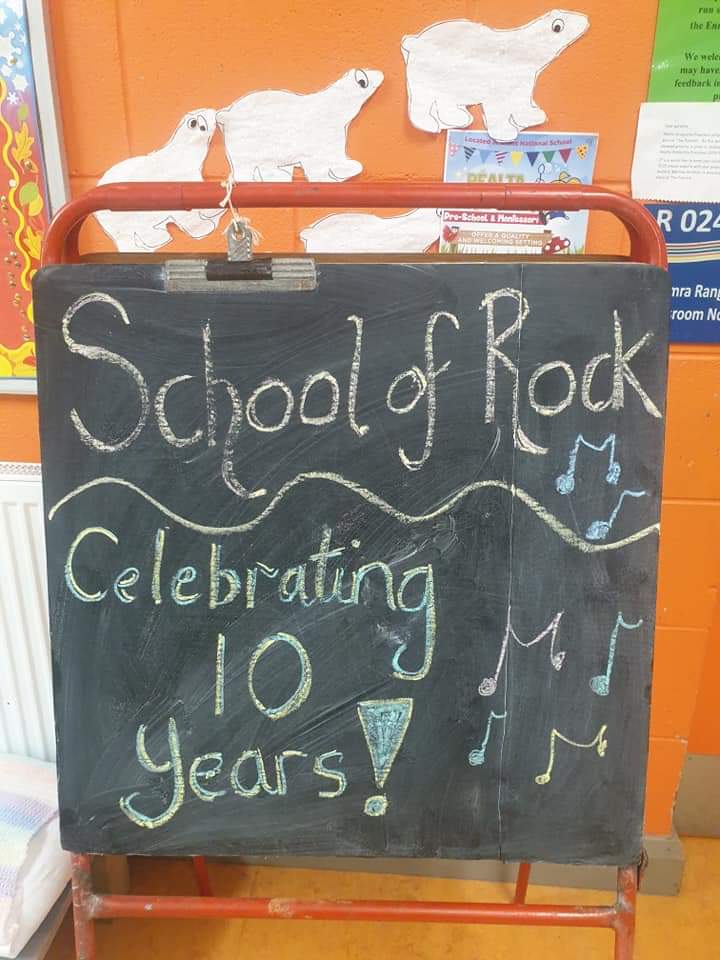 run s
the En
We welc
may have
feedback i
Located
National School
RÉALTA
Pre-School & Montessori
OFFER A QUALITY
AND WELCOMING SETTING
R 024
mra Rang
room No
School of Rock
Celebrating
10
Years!